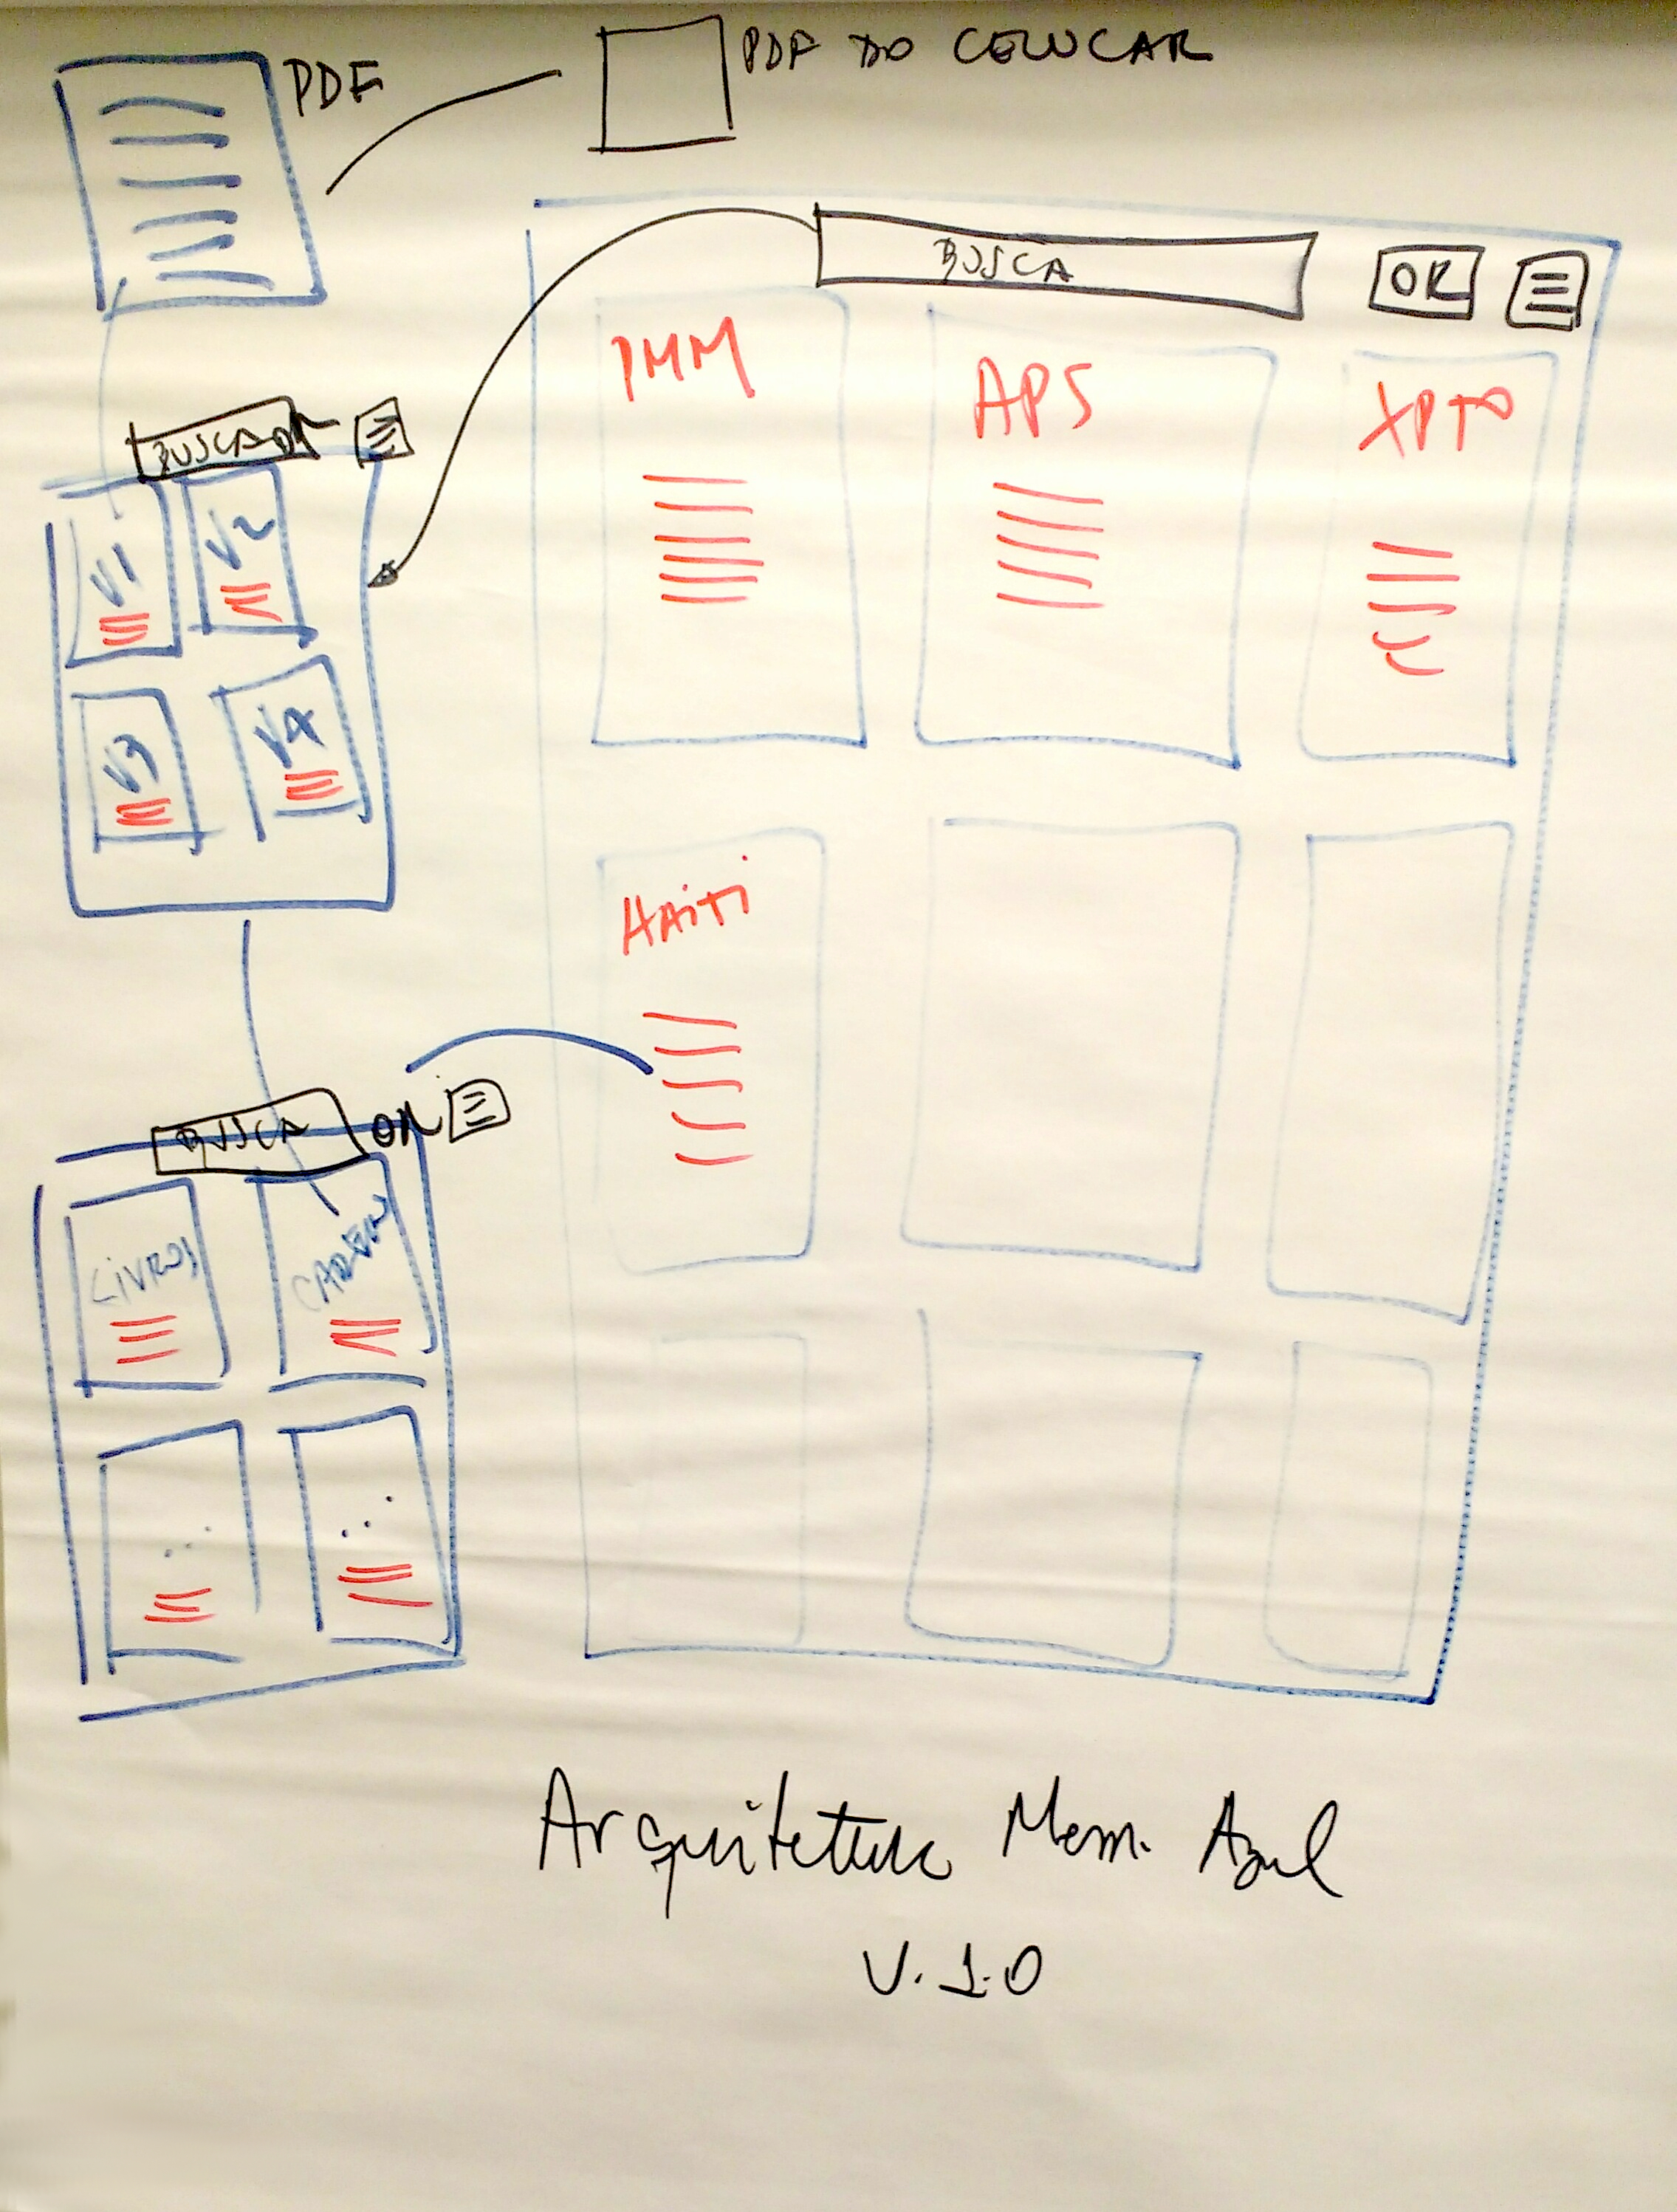 PDF
PDF DO CELULAR
BUSCA
OK
IMM
APS
XPTO
BUSCADOR
V1
V2
V3
V4
HAiTi
BUSCA
OK
LiVROS
...
...
Arquitetura Mem. Azul
V. 1.0